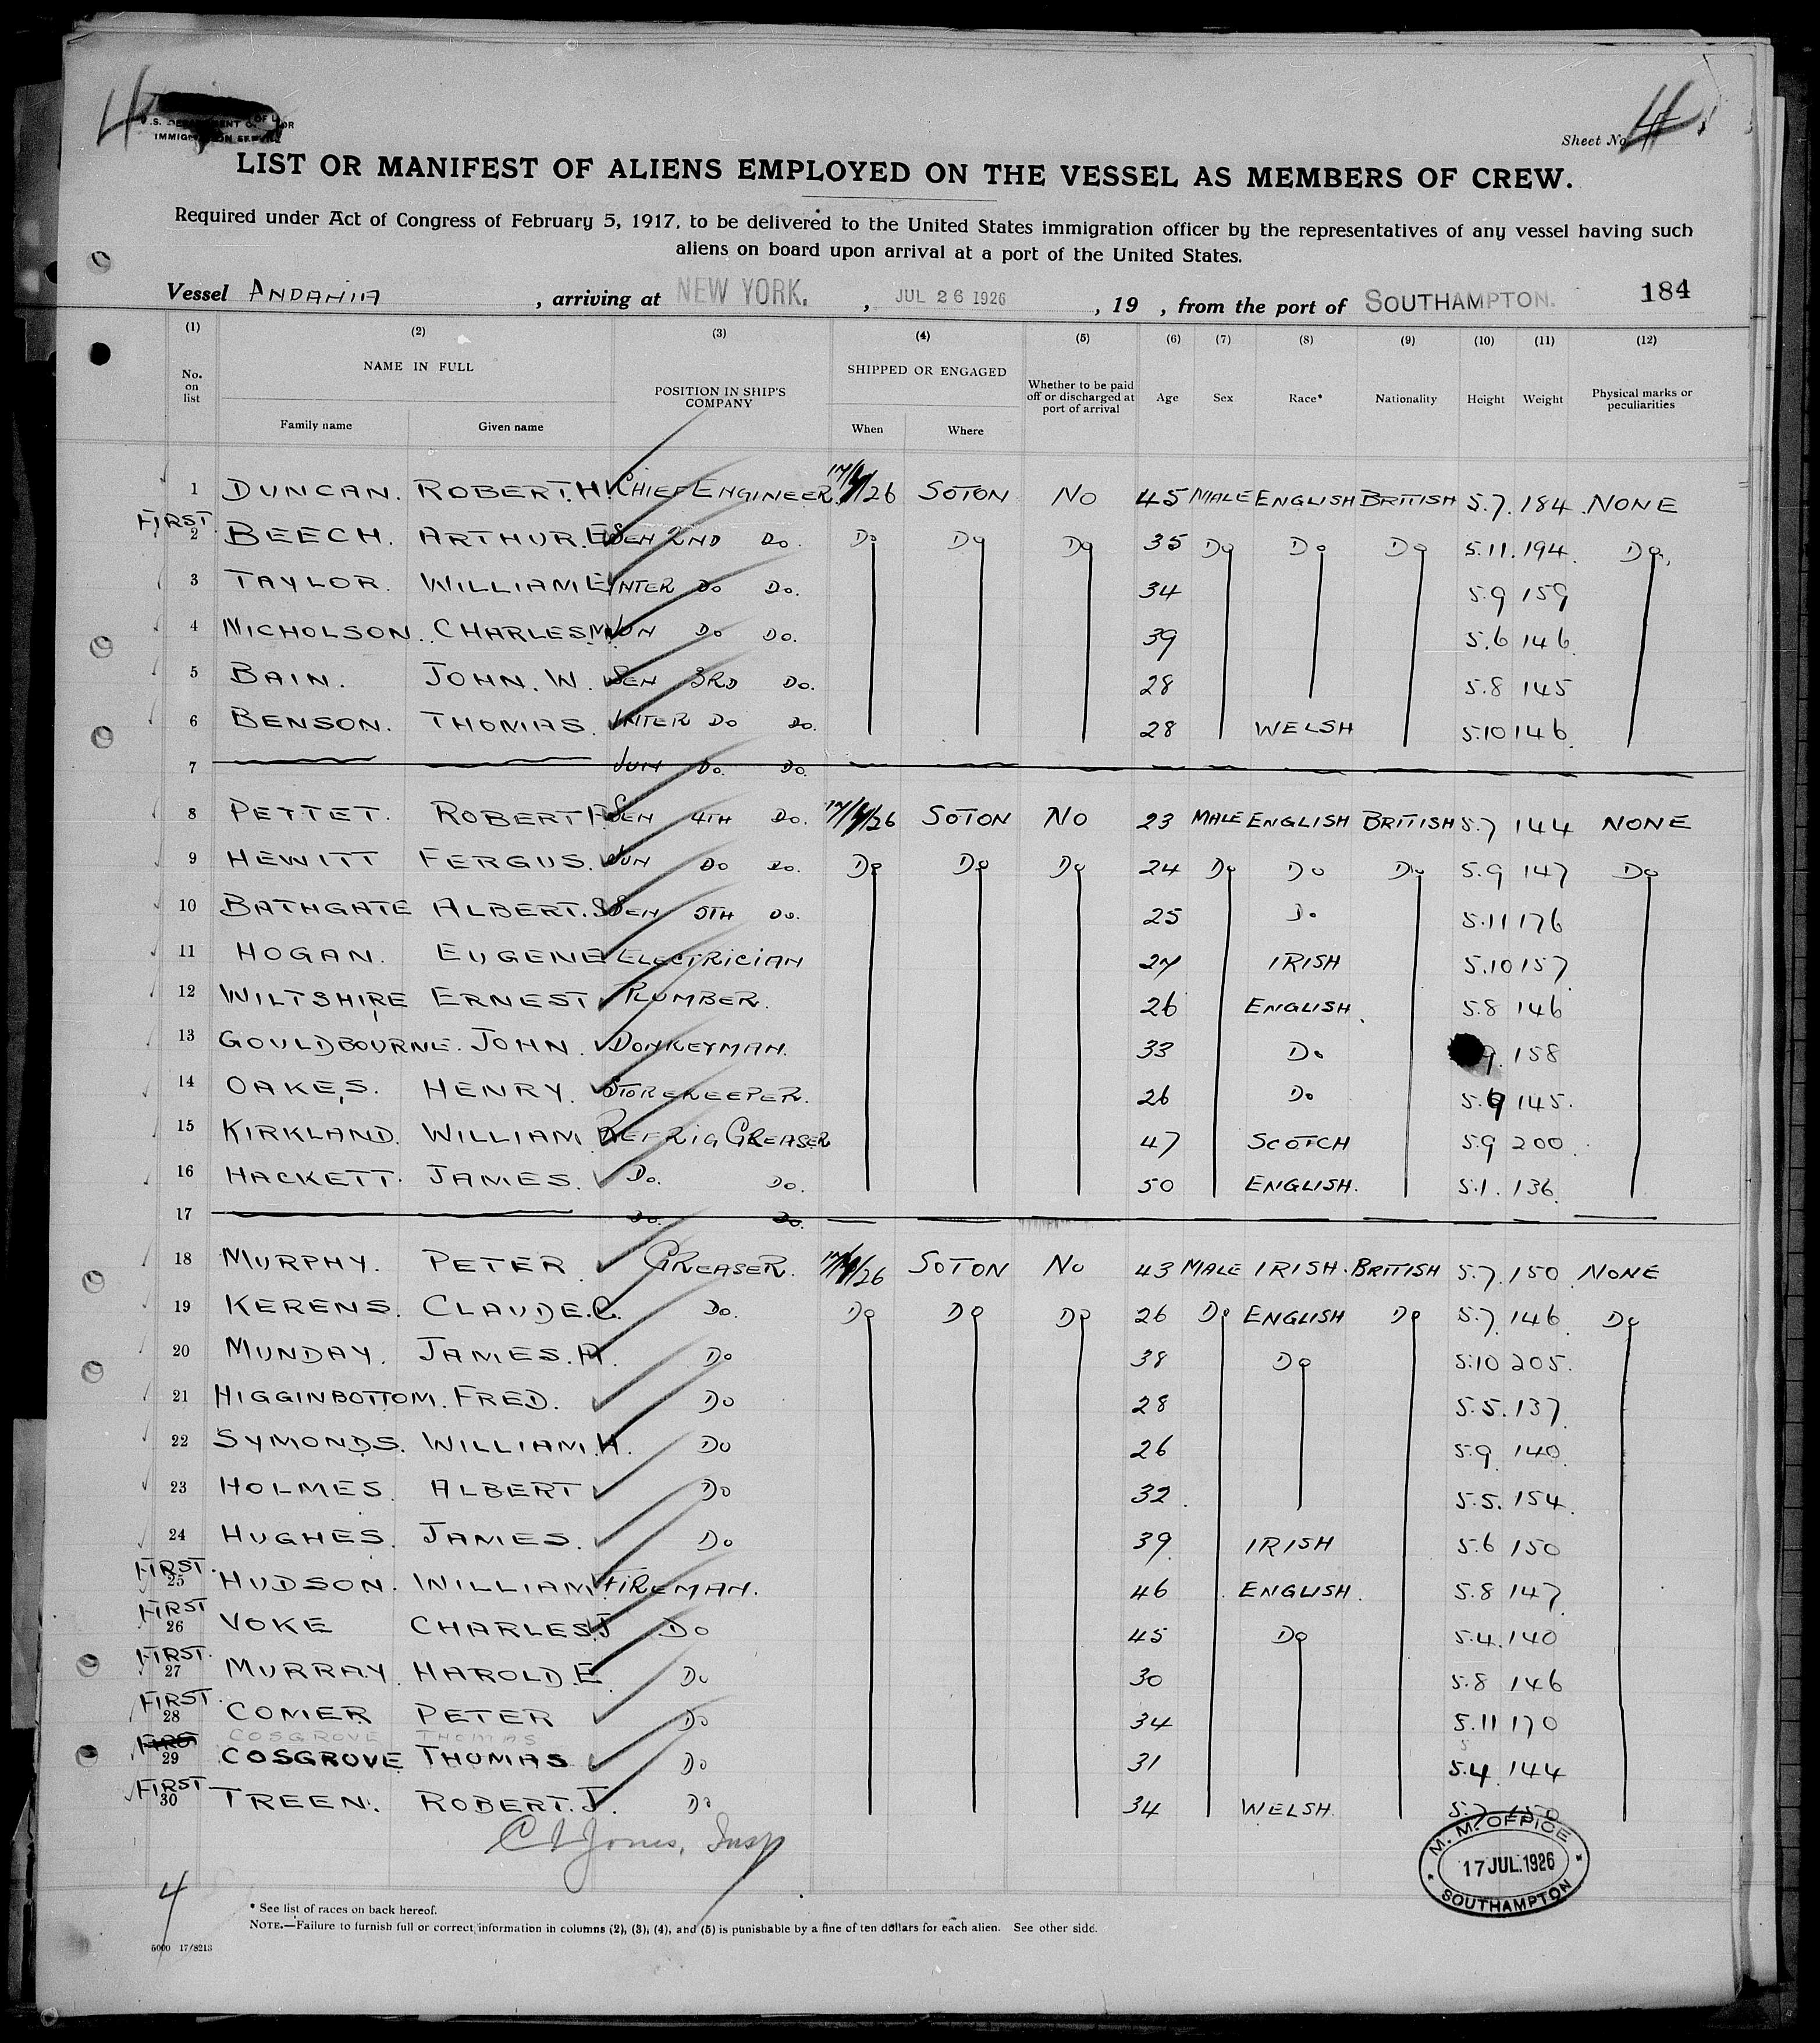 4
U.S. DEPARTMENT OF LABOR
IMMIGRATION SERVICE
Sheet No. 4
LIST OR MANIFEST OF ALIENS EMPLOYED ON THE VESSEL AS MEMBERS OF CREW.
Required under Act of Congress of February 5, 1917, to be delivered to the United States immigration officer by the representatives of any vessel having such
aliens on board upon arrival at a port of the United States.
Vessel ANDANIA, arriving at NEW YORK., JUL 26 1926, 19 , from the port of SOUTHAMPTON. 184
(1) (2) (3) (4) (5) (6) (7) (8) (9) (10) (11) (12)
No. on list NAME IN FULL Family name Given name POSITION IN SHIP'S COMPANY SHIPPED OR ENGAGED When Where Whether to be paid off or discharged at port of arrival Age Sex Race* Nationality Height Weight Physical marks or peculiarities
1 DUNCAN. ROBERT.H. CHIEF ENGINEER. 17/7/26 SOTON NO 45 MALE ENGLISH BRITISH 5.7. 184 NONE
FIRST 2 BEECH. ARTHUR.E SEN 2ND DO. DO DO DO 35 DO DO DO 5.11. 194. DO.
3 TAYLOR. WILLIAM E INTER DO DO. 34 5.9 159
4 NICHOLSON. CHARLES M. JUN DO DO. 39 5.6 146.
5 BAIN. JOHN. W. SEN 3RD DO. 28 5.8 145
6 BENSON. THOMAS. INTER DO DO. 28 WELSH 5.10 146.
7 JUN DO. DO.
8 PETTET. ROBERT SEN 4TH DO. 17/7/26 SOTON NO 23 MALE ENGLISH BRITISH 5.7 144 NONE
9 HEWITT FERGUS. JUN DO DO. DO DO DO 24 DO DO DO 5.9 147 DO
10 BATHGATE ALBERT. S SEN 5TH DO. 25 DO 5.11 176
11 HOGAN. EUGENE ELECTRICIAN 27 IRISH 5.10 157
12 WILTSHIRE ERNEST PLUMBER. 26 ENGLISH. 5.8 146
13 GOULDBOURNE. JOHN. DONKEYMAN. 33 DO 9. 158
14 OAKES. HENRY. STOREKEEPER. 26 DO 5.9 145.
15 KIRKLAND. WILLIAM REFRIG GREASER 47 SCOTCH 5.9 200.
16 HACKETT. JAMES. DO. DO. 50 ENGLISH. 5.1. 136.
17 DO. DO.
18 MURPHY. PETER. GREASER. 17/7/26 SOTON NO 43 MALE IRISH. BRITISH 5.7. 150 NONE
19 KERENS. CLAUDE.C. DO. DO DO DO 26 DO ENGLISH DO 5.7. 146. DO
20 MUNDAY. JAMES.A. DO 38 DO 5.10 205.
21 HIGGINBOTTOM. FRED. DO 28 5.5. 137.
22 SYMONDS. WILLIAM.H. DO 26 5.9. 140.
23 HOLMES. ALBERT DO 32. 5.5. 154.
24 HUGHES. JAMES. DO 39. IRISH 5.6 150
FIRST. 25 HUDSON. WILLIAM FIREMAN. 46 ENGLISH. 5.8 147.
FIRST 26 VOKE CHARLES.J DO 45 DO 5.4. 140
FIRST. 27 MURRAY. HAROLD.E. DO 30 5.8 146
FIRST. 28 COMER PETER DO 34 5.11 170
COSGROVE THOMAS
FIRST 29 COSGROVE THOMAS DO 31 5.4 144
FIRST 30 TREEN. ROBERT.J. DO 34 WELSH. 5.7 150
Jones, Insp
M. M. OFFICE
17 JUL. 1926
SOUTHAMPTON
4
* See list of races on back hereof.
NOTE.—Failure to furnish full or correct information in columns (2), (3), (4), and (5) is punishable by a fine of ten dollars for each alien. See other side.
5000 17/8213